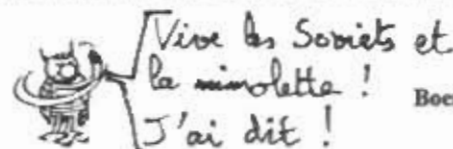 Vive les Soviets et
la mimolette !
J'ai dit !
Boe